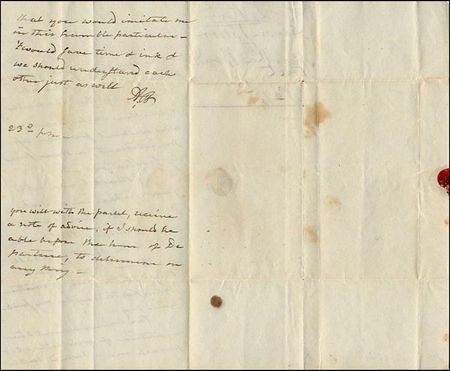 that you would imitate me
in this humble particular —
It would save time & ink &
we should understand each
other just as well
23d p.m.
you will with the packet, receive
a note of advice, if I should be
able before the hour of De
parture, to determine on
any thing —